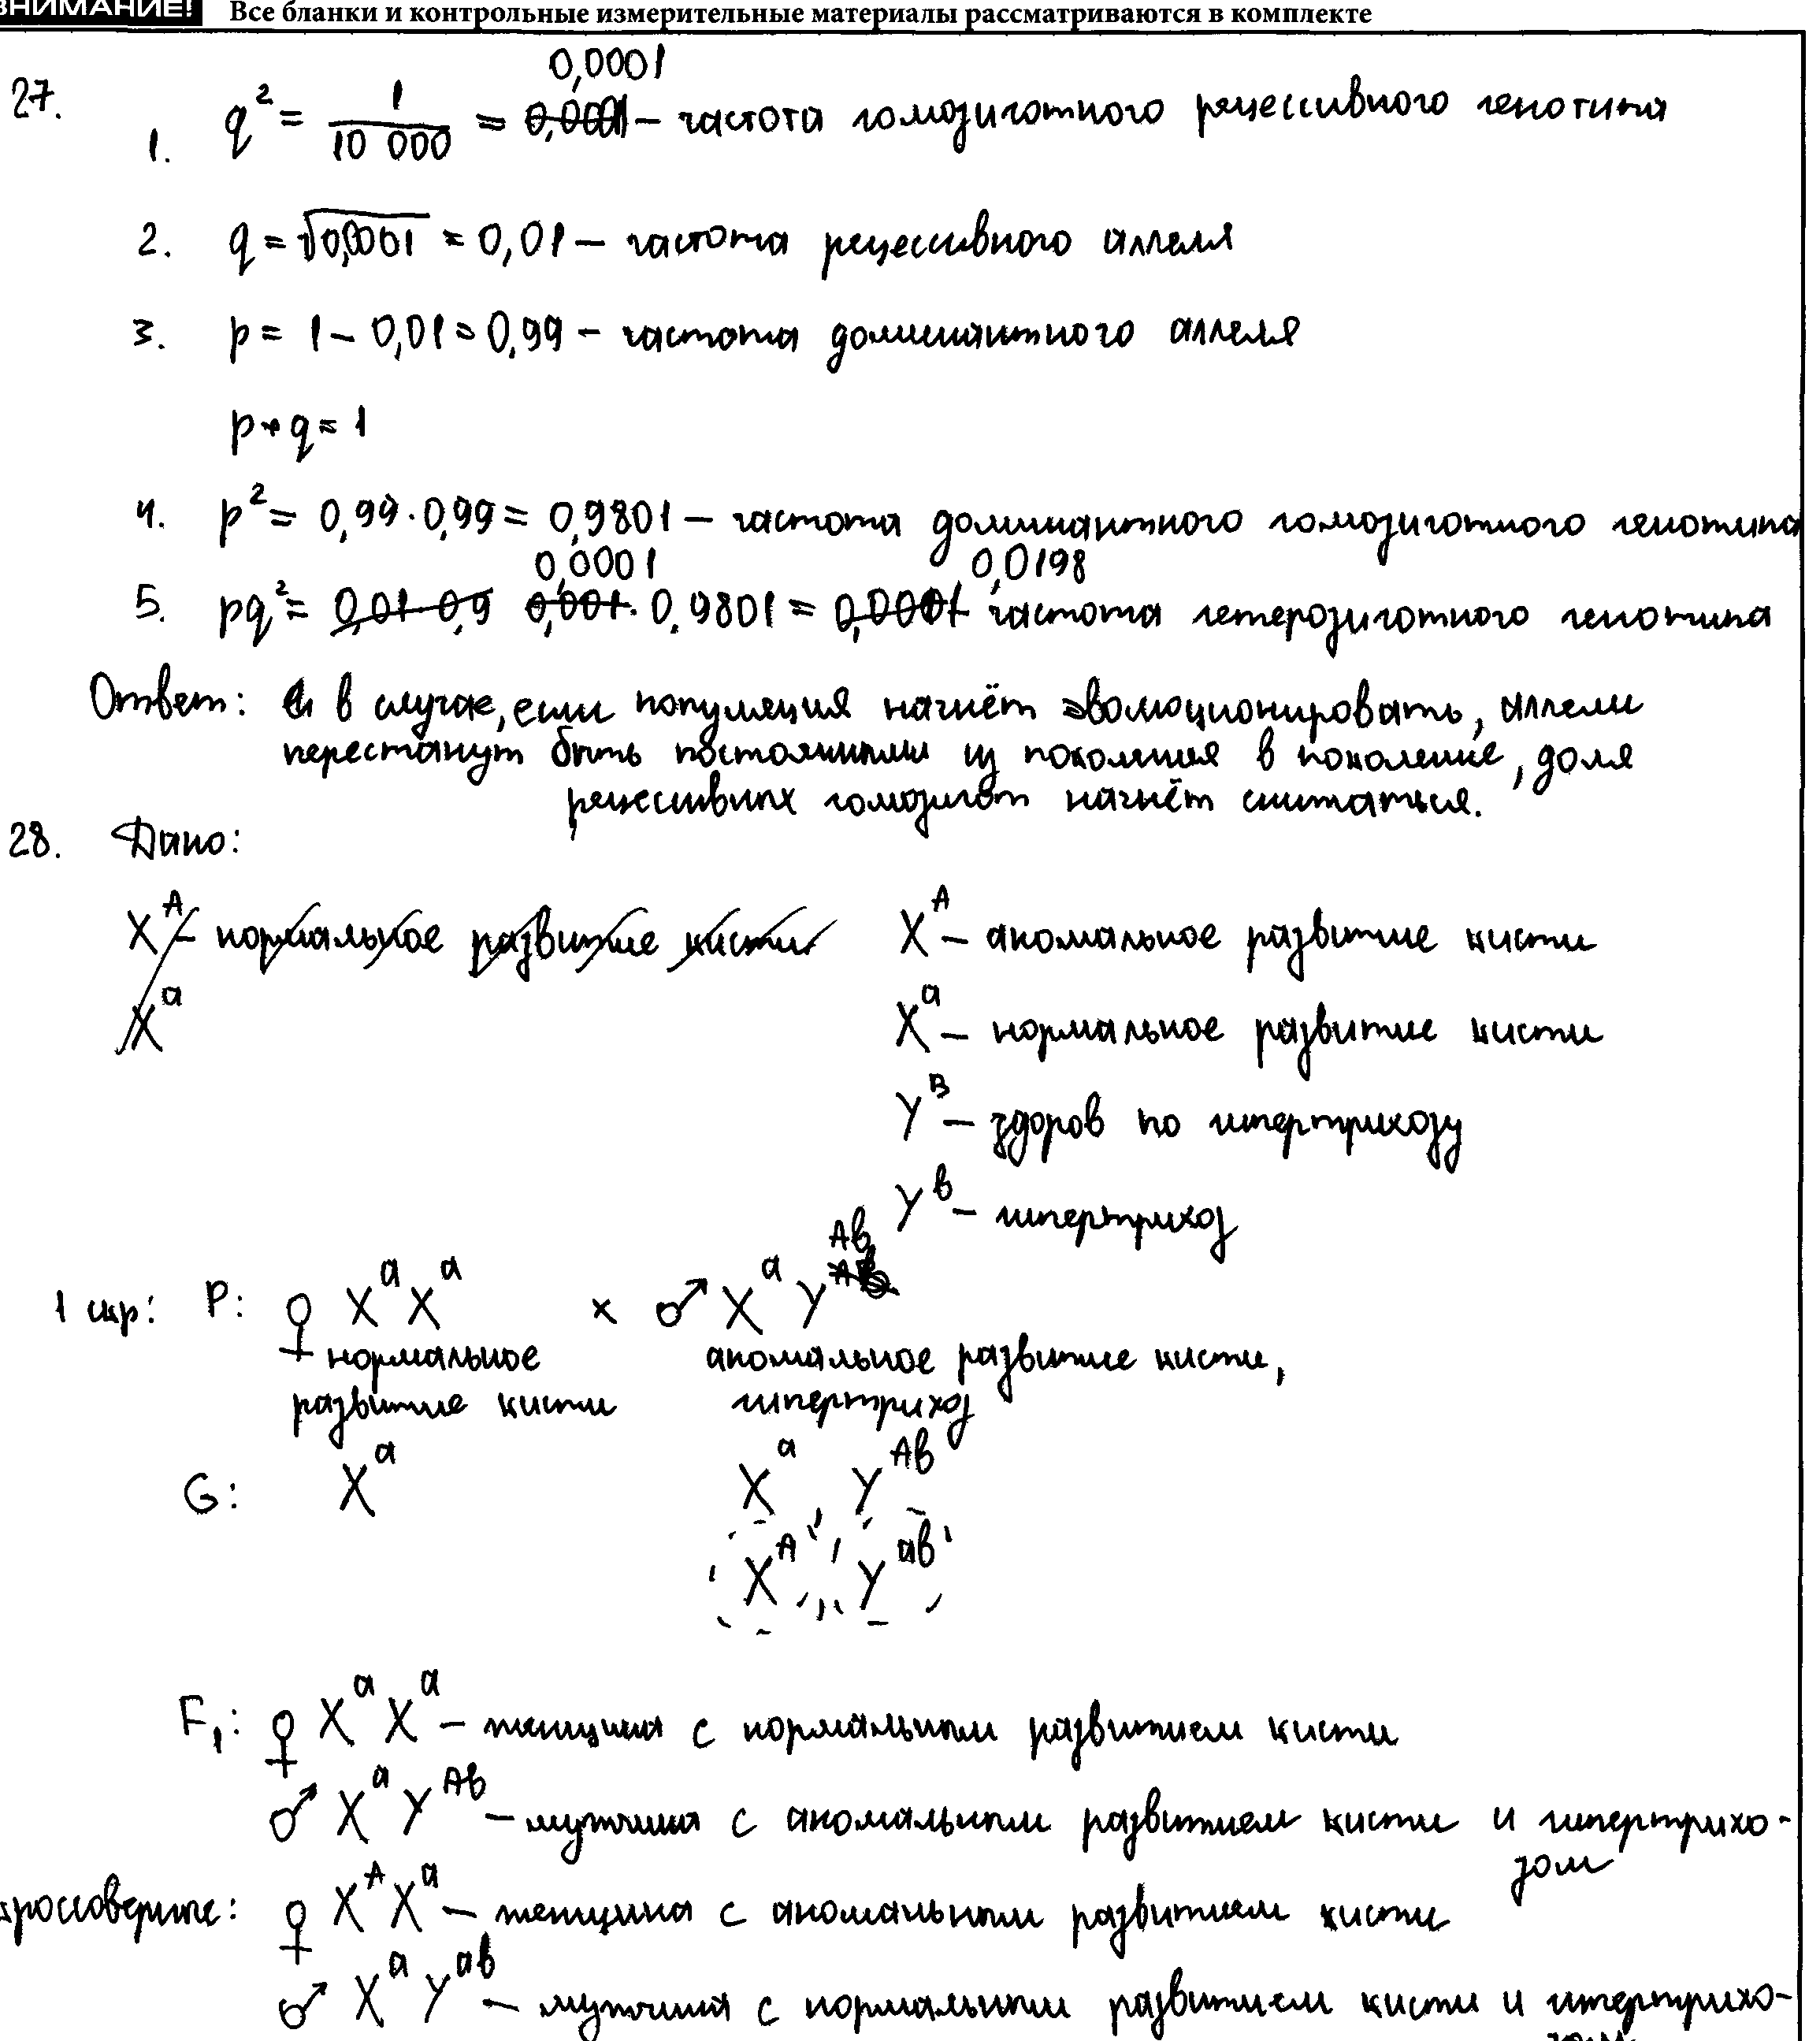 ВНИМАНИЕ! Все бланки и контрольные измерительные материалы рассматриваются в комплекте
0,0001
27. 1. q² = 1/10 000 = 0,0001 – частота гомозиготного рецессивного генотипа
2. q = √0,0001 = 0,01 – частота рецессивного аллеля
3. p = 1 – 0,01 = 0,99 – частота доминантного аллеля
p + q = 1
4. p² = 0,99 · 0,99 = 0,9801 – частота доминантного гомозиготного генотипа
0,0001 0,0198
5. pq² = 0,01 · 0,9 0,001 · 0,9801 = 0,0001 частота гетерозиготного генотипа
Ответ: в случае, если популяция начнёт эволюционировать, аллели
перестанут быть постоянными из поколения в поколение, доля
рецессивных гомозигот начнёт снижаться.
28. Дано:
X^A – нормальное развитие кисти X^A – аномальное развитие кисти
X^a X^a – нормальное развитие кисти
Y^B – здоров по гипертрихозу
Y^b – гипертрихоз
1 скр: P: ♀ X^a X^a × ♂ X^a Y^Ab
нормальное аномальное развитие кисти,
развитие кисти гипертрихоз
G: X^a X^a, Y^Ab
X^A, Y^ab
F₁: ♀ X^a X^a – женщина с нормальным развитием кисти
♂ X^a Y^Ab – мужчина с аномальным развитием кисти и гипертрихо-
зом
кроссоверные: ♀ X^A X^a – женщина с аномальным развитием кисти
♂ X^a Y^ab – мужчина с нормальным развитием кисти и гипертрихо-